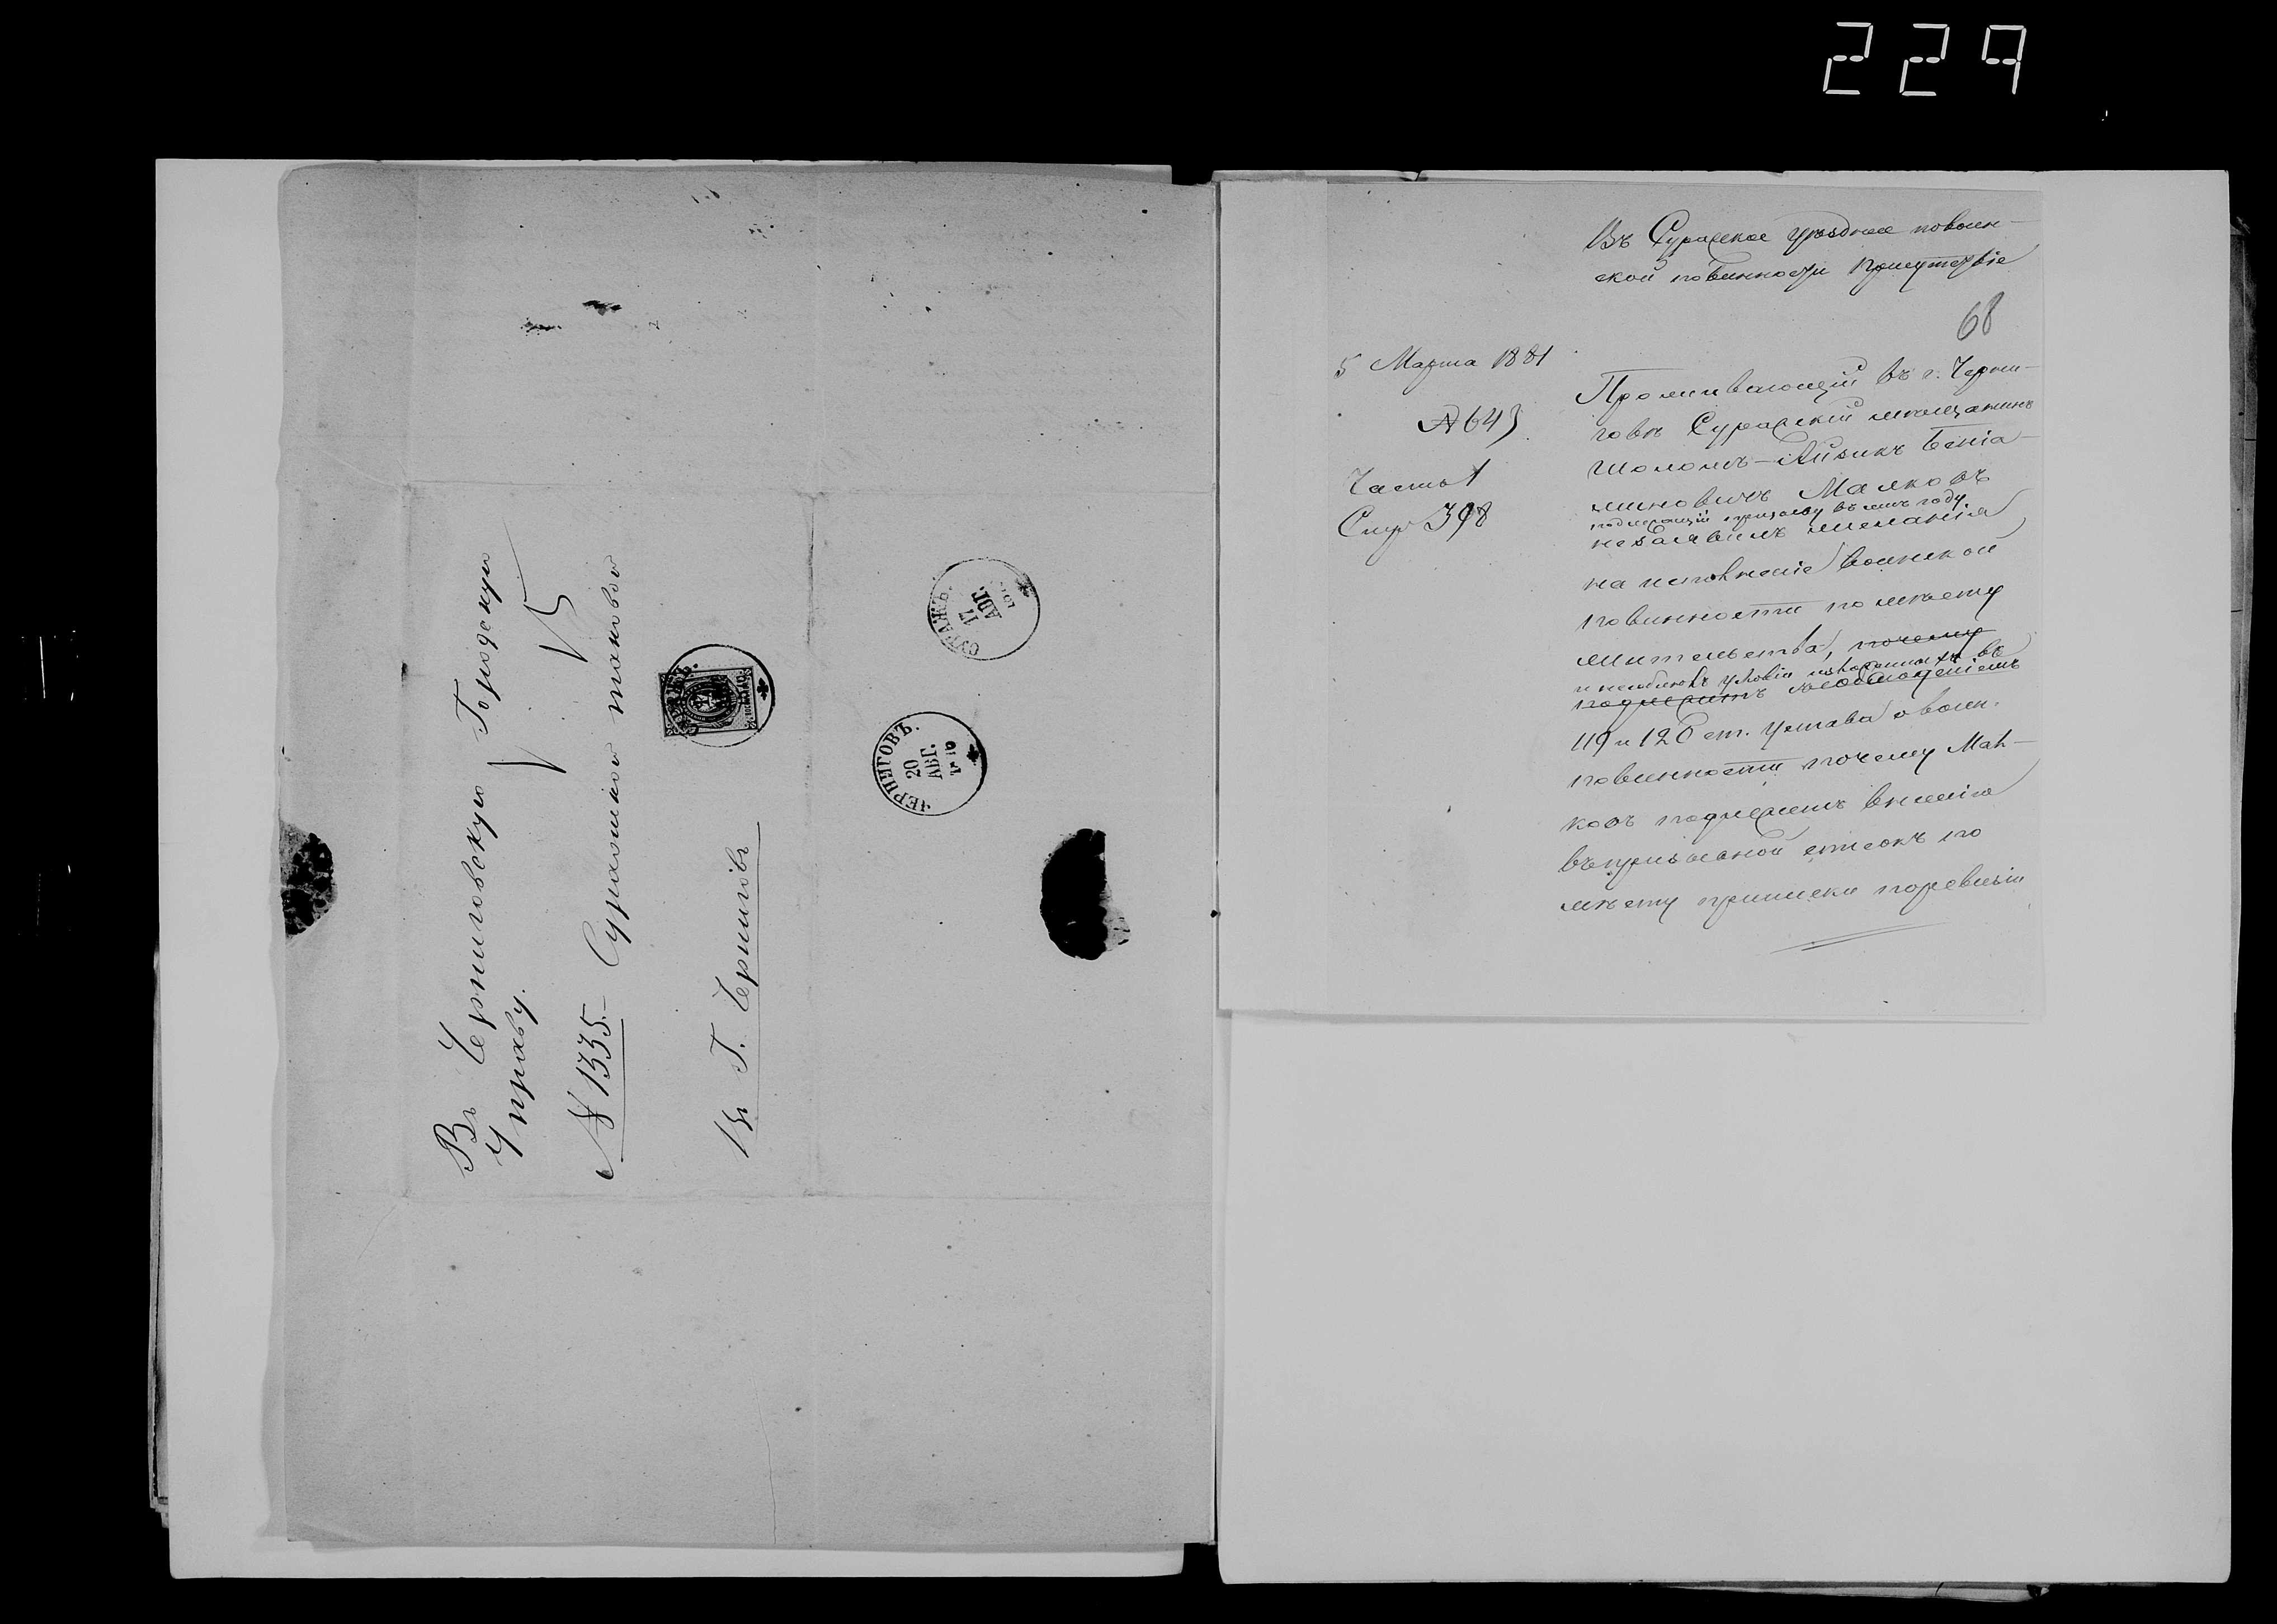 229
Въ Черниговскую Городскую
Управу.
№ 1335.
Въ Г. Черниговъ
СУРАЖЪ.
17
АВГ.
ЧЕРНИГОВЪ.
20
АВГ.
Въ Суражское уѣздное по воин-
ской повинности присутствіе
68
5 Марта 1881
№ 643
Часть 1
Стр 398
Проживающій въ г. Черни-
говѣ Суражскій мѣщанинъ
Шоломъ-Айзикъ Бенiа-
миновичъ Малковъ
подлежащій призыву въ семъ году
не заявилъ желанія
на исполненіе воинской
повинности по мѣсту
жительства, почему
и условія въ
подлежитъ
119 и 120 ст. Устава о воин.
повинности почему Мал-
ковъ подлежитъ внесенію
въ призывной списокъ по
мѣсту приписки по ревизіи